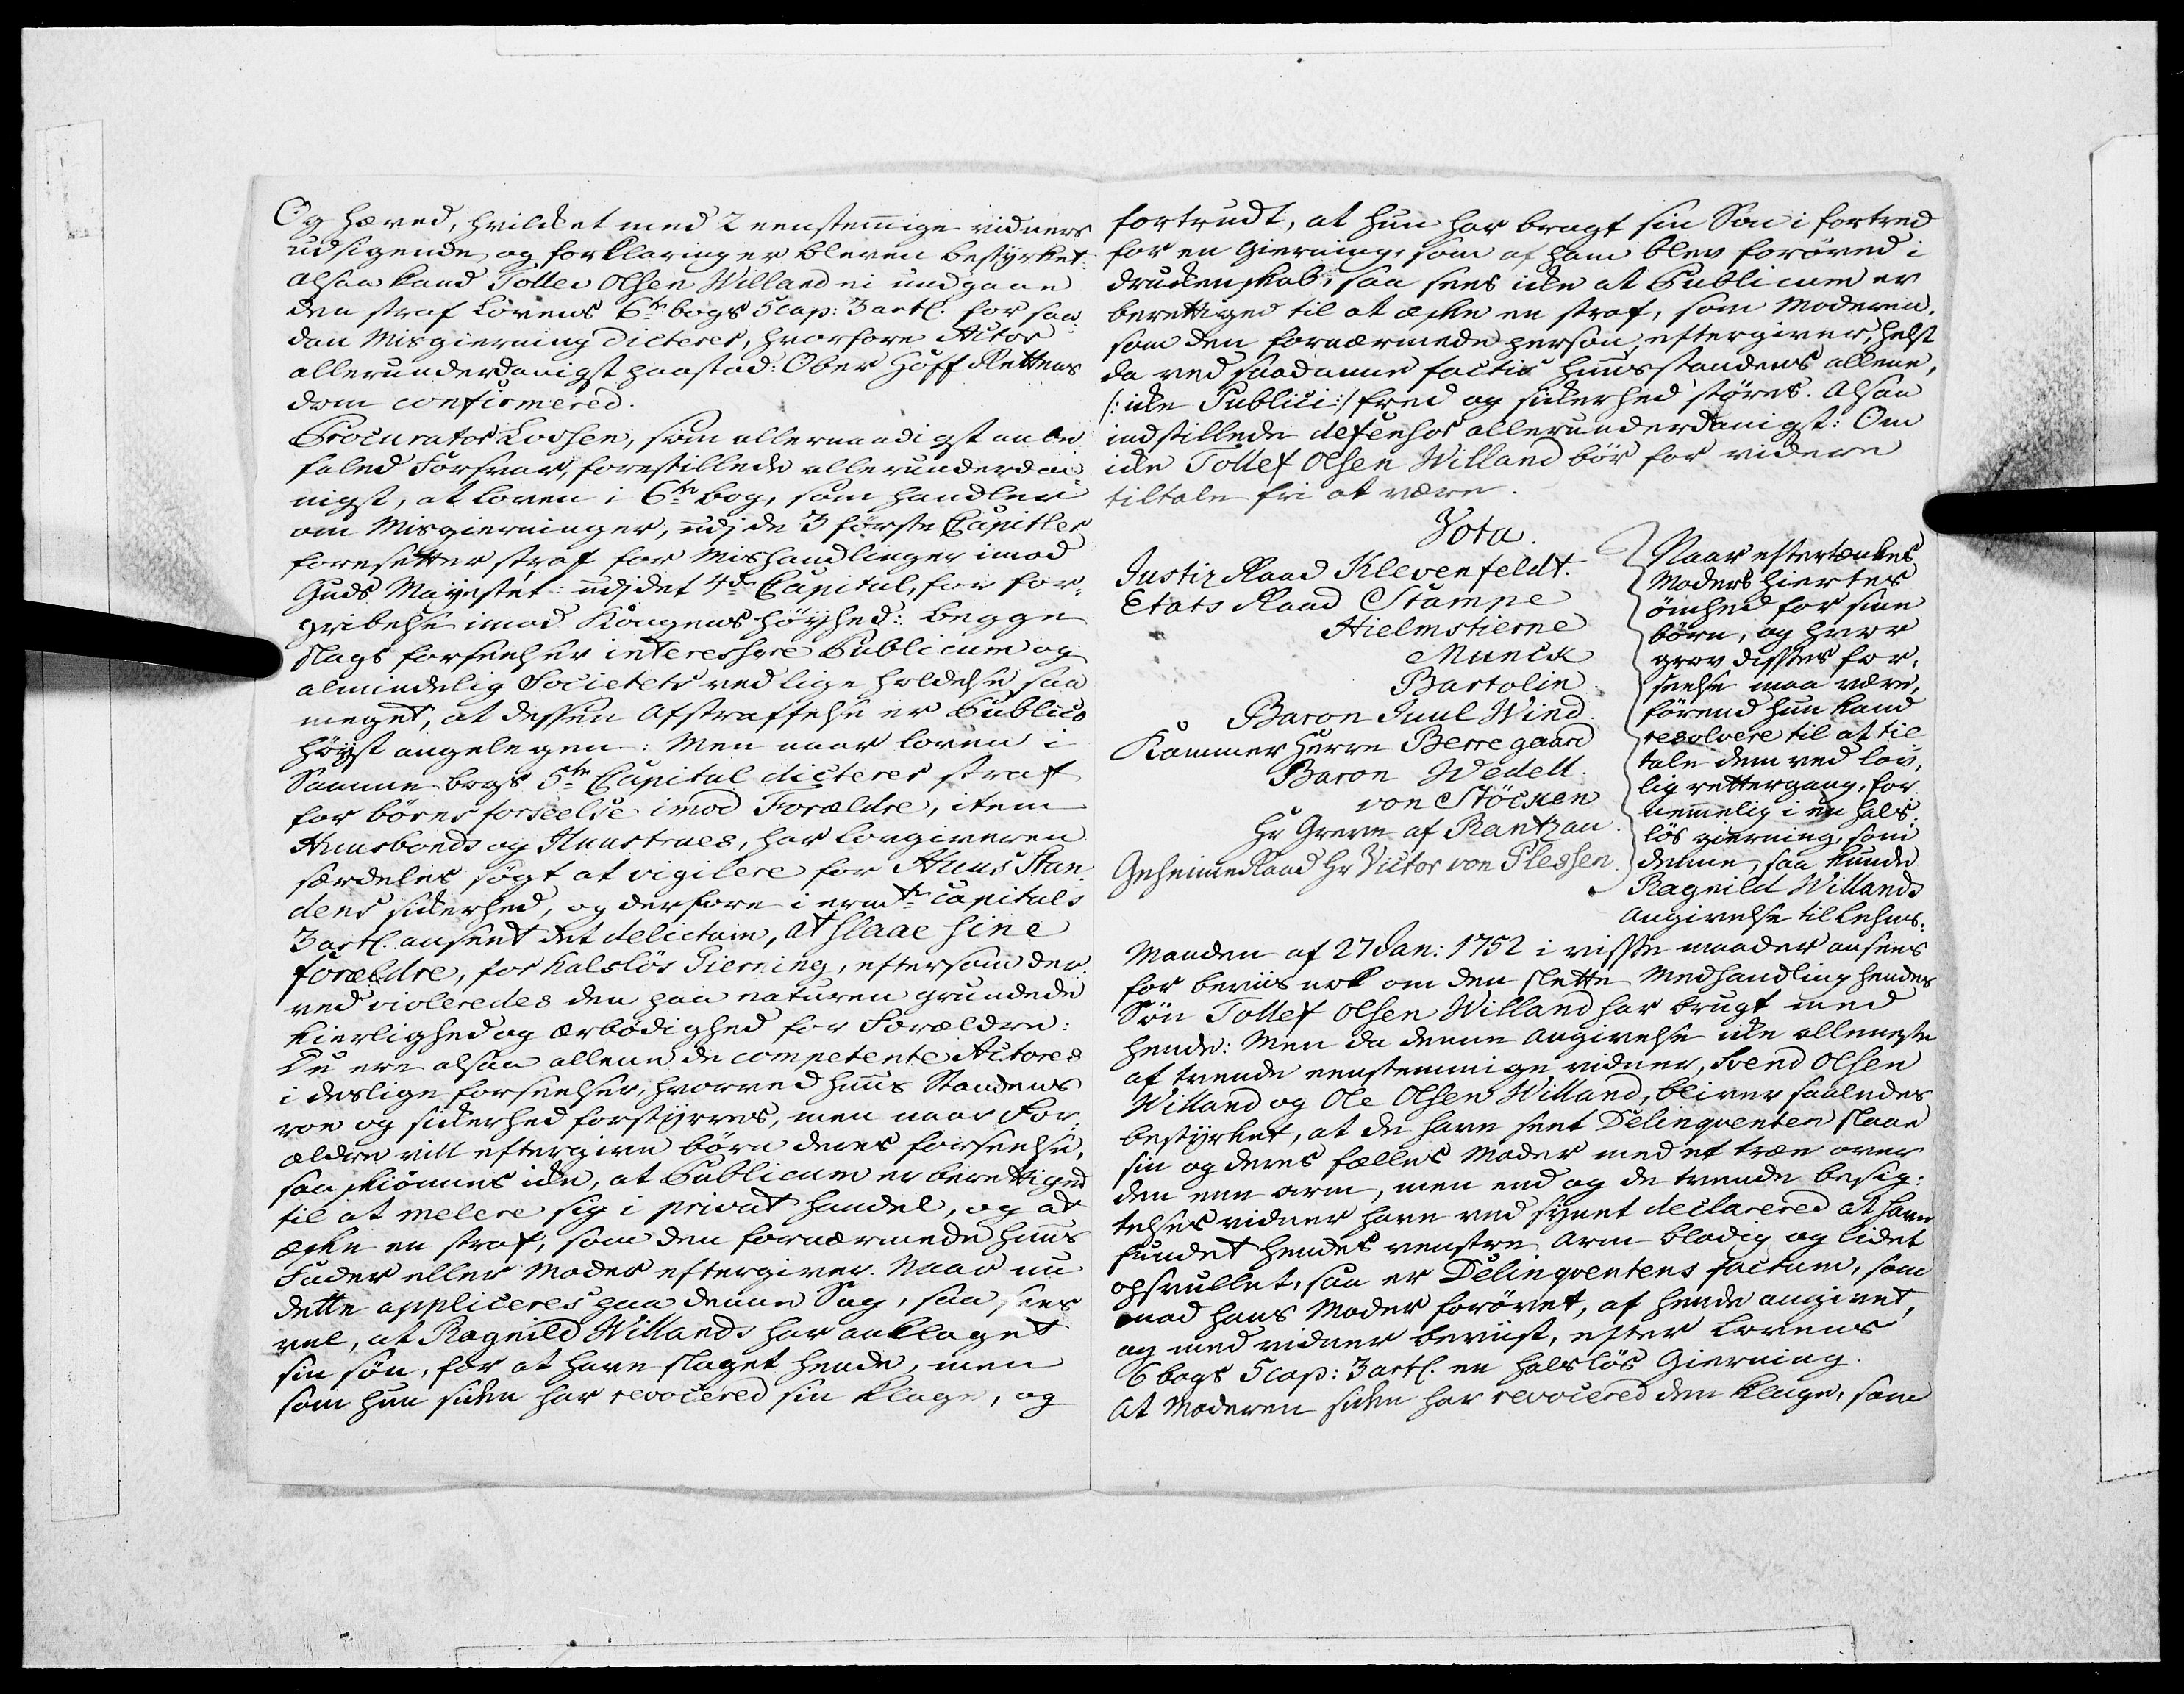 Og hæved, hvilket med 2 eenstemige vidners
udsigende og forklaring er bleven bestyrket.
Altsaa kand Tollev Olsen Willand ei undgaae
den straf Lovens 6te bogs 5 cap: 3 artl. for saa
dan Misgierning dicterer, hvorfore Actor
allerunderdanigst paastod: Ober Hoff Rettens
dom confirmered.
Procurator Lossen, som allernaadigst anbe
faled Forsvar, forestillede allerunderda
nigst, at loven i 6te bog, som handler
om Misgierninger, udj de 3 første Capitler
foresetter straf for Mishandlinger imod
Guds Mayestet: udj det 4de Capitul, for for,
gribelse imod Kongens höyhed: begge
slags forseelser interessere Publicum og
almindelig Societets vedlige holdelse saa
meget, at dessen afstraffelse er Publico
höyst angelegen: Men naar loven i
Samme bogs 5te Capitul dicterer straf
for börnes forseelse imod Forældre, item
Huusbonds og Huustrues, har lovgiveren
særdeles sögt at vigilere for Huus Stan
dens sikerhed, og derfore i ermte Capituls
3 artl. anseet det delictum, at slaae sine
forældre, for halslös Gierning, eftersom der
ved violeredes den paa naturen grundede
kierlighed og ærbödighed for Forældre:
De ere altsaa allene de competente Actores
i deslige forseelser, hvorved huus Standens
roe og sikerhed forstyrres, men naar For,
ældre vill eftergive börn deres forseelse,
saa skiönnes ike, at Publicum er berettiged
til at melere sig i privat handel, og at
æske en straf, som den fornærmede huus
Fader eller Moder eftergiver. Naar nu
dette appliceres paa denne Sag, saa sees
vel, at Ragnild Willands har anklaget
sin sön, for at have slaget hende, men
som hun siden har revocered sin klage, og
fortrudt, at hun har bragt sin Sön i fortred
for en Gierning, som af ham blev foröved i
drukenskab; saa sees ike at Publicum er
berettiged til at æske en straf, som Moderen,
som den fornærmede person, eftergiver, helst
da ved saadanne factis huusstandens allene,
/: ike Publici :/ fred og sikerhed störes. Altsaa
indstillede defensor allerunderdanigst: Om
ike Tollef Olsen Willand bör for videre
tiltale fri at være.
Vota.
Justiz Raad Klevenfeldt.
Etats Raad Stampe
Hielmstierne
Munck
Bartolin
Baron Juul Wind
Kammer Herre Berregaard
Baron Wedell.
von Stöcken
Hr Greve af Rantzau
Geheime Raad Hr Victor von Plessen.
Naar eftertænkes
Moders hiertes
ömhed for sine
börn, og hvor
grov disses for,
seelse maa være,
förend hun kand
resolvere til at til
tale dem ved lov,
lig rettergang, for
nemmelig i en hals
lös gierning, som
denne, saa kunde
Ragnild Willands
angivelse til Lehns,
Manden af 27 Jan: 1752 i visse maader ansees
for beviis nok om den slette Medhandling hendes
Sön Tollef Olsen Willand har brugt med
hende: Men da denne angivelse ike alleneste
af tvende eenstemmige vidner, Svend Olsen
Willand og Ole Olsen Willand, bliver saaledes
bestyrket, at de have seet Delinqventen slaae
sin og deres fælles Moder med et træe over
den ene arm, men end og de tvende besig,
telses vidner have ved synet declarered at have
fundet hendes venstre Arm blodig og lidet
opsvullet, saa er Delinqventens factum, som
mod hans Moder forövet, af hende angivet,
og med vidner beviist, efter Lovens
6 bogs 5 cap: 3 artl. en halslös Gierning.
At Moderen siden har revocered den klage, som